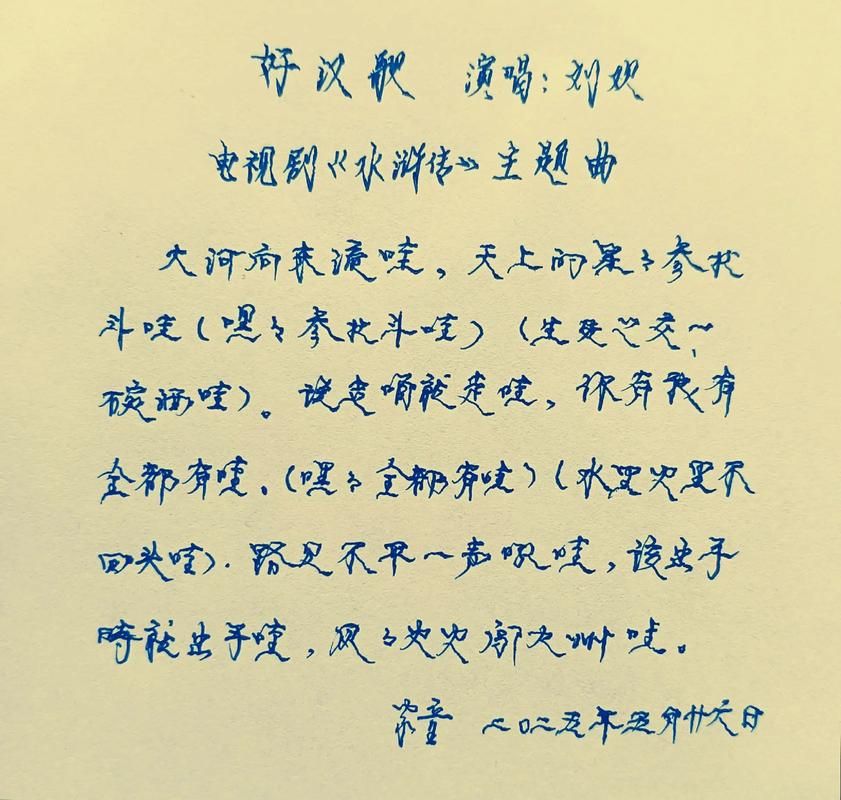 好汉歌 演唱：刘欢
电视剧《水浒传》主题曲
大河向东流哇，天上的星々参北
斗哇（嘿々参北斗哇）（生死之交一
碗酒哇）。说走咱就走哇，你有我有
全都有哇。（嘿々全都有哇）（水里火里不
回头哇）．路见不平一声吼哇，该出手
時就出手哇，风々火火闯九州哇。
二〇二五年五月廿六日